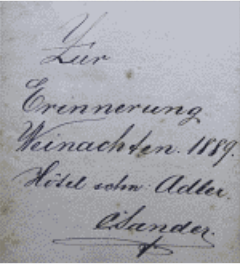 Zur
Erinnerung
Weinachten. 1889.
Hôtel schw: Adler.
C Sander.